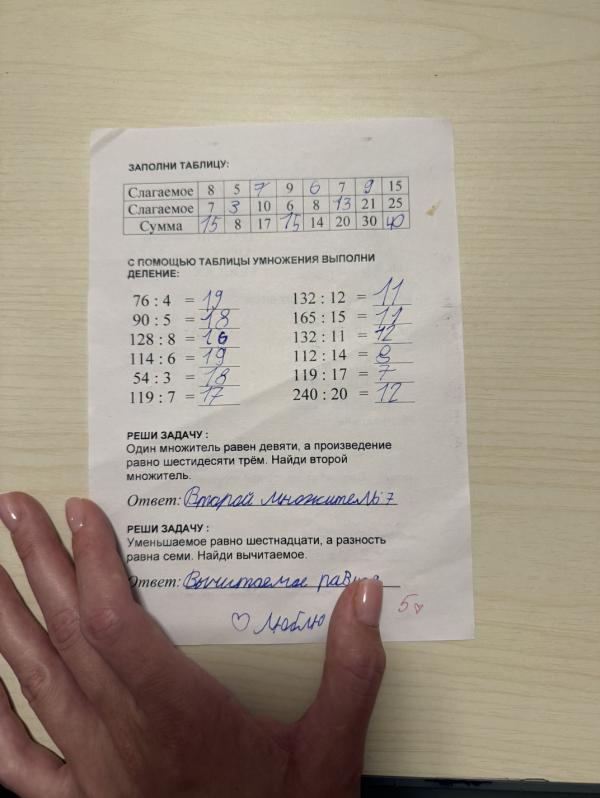 ЗАПОЛНИ ТАБЛИЦУ:
Слагаемое 8 5 7 9 6 7 9 15
Слагаемое 7 3 10 6 8 13 21 25
Сумма 15 8 17 15 14 20 30 40
С ПОМОЩЬЮ ТАБЛИЦЫ УМНОЖЕНИЯ ВЫПОЛНИ
ДЕЛЕНИЕ:
76 : 4 = 19 132 : 12 = 11
90 : 5 = 18 165 : 15 = 11
128 : 8 = 16 132 : 11 = 12
114 : 6 = 19 112 : 14 = 8
54 : 3 = 18 119 : 17 = 7
119 : 7 = 17 240 : 20 = 12
РЕШИ ЗАДАЧУ :
Один множитель равен девяти, а произведение
равно шестидесяти трём. Найди второй
множитель.
Ответ: Второй множитель 7
РЕШИ ЗАДАЧУ :
Уменьшаемое равно шестнадцати, а разность
равна семи. Найди вычитаемое.
Ответ: Вычитаемое
♡ Люблю 5♡